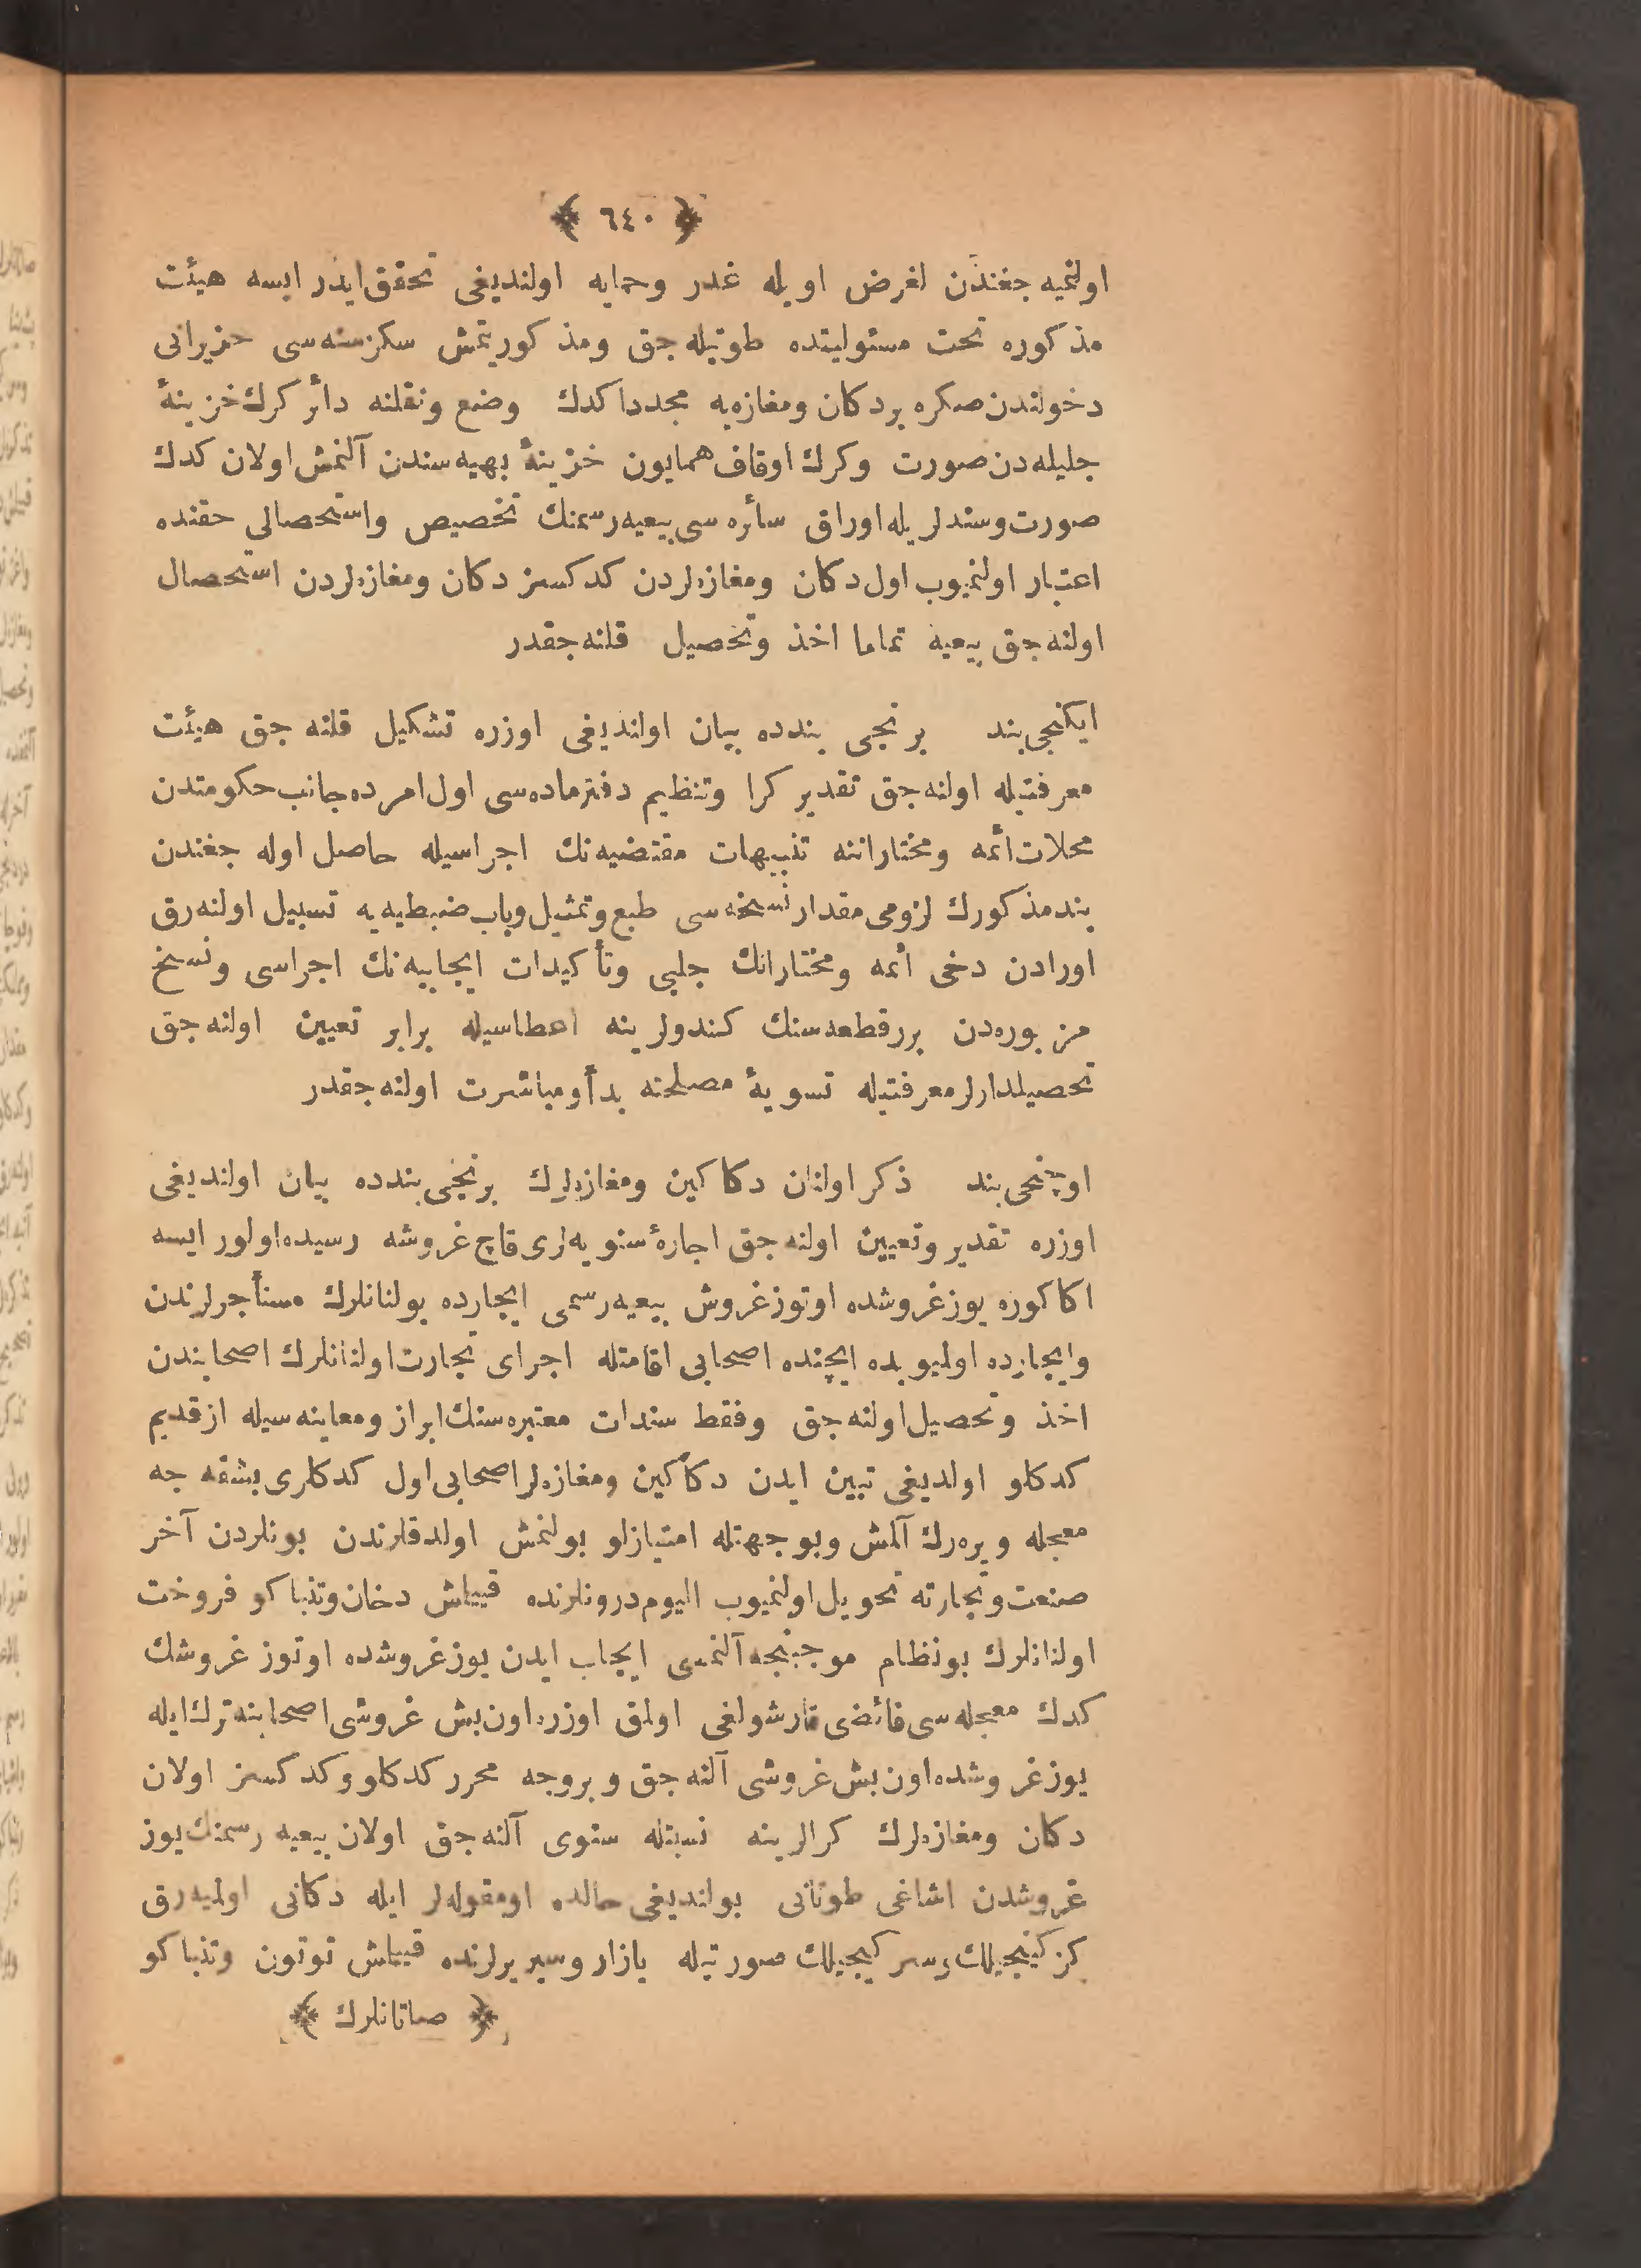 ﴿ ٦٤٠ ﴾
اولنميه جغندن لغرض اويله غدر وحمايه اولنديغى تحقق ايدر ايسه هيئت
مذكوره تحت مسئوليتده طوتيله جق ومذكور يتمش سكز سنه سى حزيرانى
دخولندن صكره بر دكان ومغازه يه مجددا كدك وضع ونقلنه دائر كرك خزينۀ
جليله دن صورت وكرك اوقاف همايون خزينۀ بهيه سندن آلنمش اولان كدك
صورت وسندلريله اوراق سائره سى بيعيه رسمنك تخصيص واستحصالى حقنده
اعتبار اولنميوب اول دكان ومغازه لردن كدكسز دكان ومغازه لردن استحصال
اولنه جق بيعيه تماما اخذ وتحصيل قلنه جقدر
ايكنجى بند برنجى بندده بيان اولنديغى اوزره تشكيل قلنه جق هيئت
معرفتيله اولنه جق تقدير كرا وتنظيم دفتر ماده سى اول امرده جانب حكومتدن
محلات ائمه ومختاراننه تنبيهات مقتضيه نك اجراسيله حاصل اوله جغندن
بند مذكورك لزومى مقدار نسخه سى طبع وتمثيل وباب ضبطيه يه تسبيل اولنه رق
اورادن دخى ائمه ومختارانك جلبى وتأكيدات ايجابيه نك اجراسى ونسخ
مزبوره دن برر قطعه سنك كندولرينه اعطاسيله برابر تعيين اولنه جق
تحصيلدارلر معرفتيله تسويۀ مصلحته بدأ ومباشرت اولنه جقدر
اوچنجى بند ذكر اولنان دكاكين ومغازه لرك برنجى بندده بيان اولنديغى
اوزره تقدير وتعيين اولنه جق اجارۀ سنويه لرى قاچ غروشه رسيده اولور ايسه
اكا كوره يوز غروشده اوتوز غروش بيعيه رسمى ايجارده بولنانلرك مستأجرلرندن
وايجارده اوليوبده ايچنده اصحابى اقامتله اجراى تجارت اولنانلرك اصحابندن
اخذ وتحصيل اولنه جق وفقط سندات معتبره سنك ابراز ومعاينه سيله از قديم
كدكلو اولديغى تبين ايدن دكاكين ومغازه لر اصحابى اول كدكلرى بشقه جه
معجله ويره رك آلمش وبو جهتله امتيازلو بولنمش اولدقلرندن بونلردن آخر
صنعت وتجارته تحويل اولنميوب اليوم درونلرنده قييلمش دخان وتنباكو فروخت
اولنانلرك بونظام موجبنجه آلنمسى ايجاب ايدن يوز غروشده اوتوز غروشك
كدك معجله سى فائضى قارشولغى اولمق اوزره اون بش غروشى اصحابنه ترك ايله
يوز غروشده اون بش غروشى آلنه جق وبروجه محرر كدكلو وكدكسز اولان
دكان ومغازه لرك كرالرينه نسبتله سنوى آلنه جق اولان بيعيه رسمنك يوز
غروشدن اشاغى طوتانى بولنديغى حالده اومقوله لر ايله دكانى اوليه رق
كزكينجيلك وسركيجيلك صورتيله بازار وسير يرلرنده قييلمش توتون وتنباكو
﴿ صاتانلرك ﴾